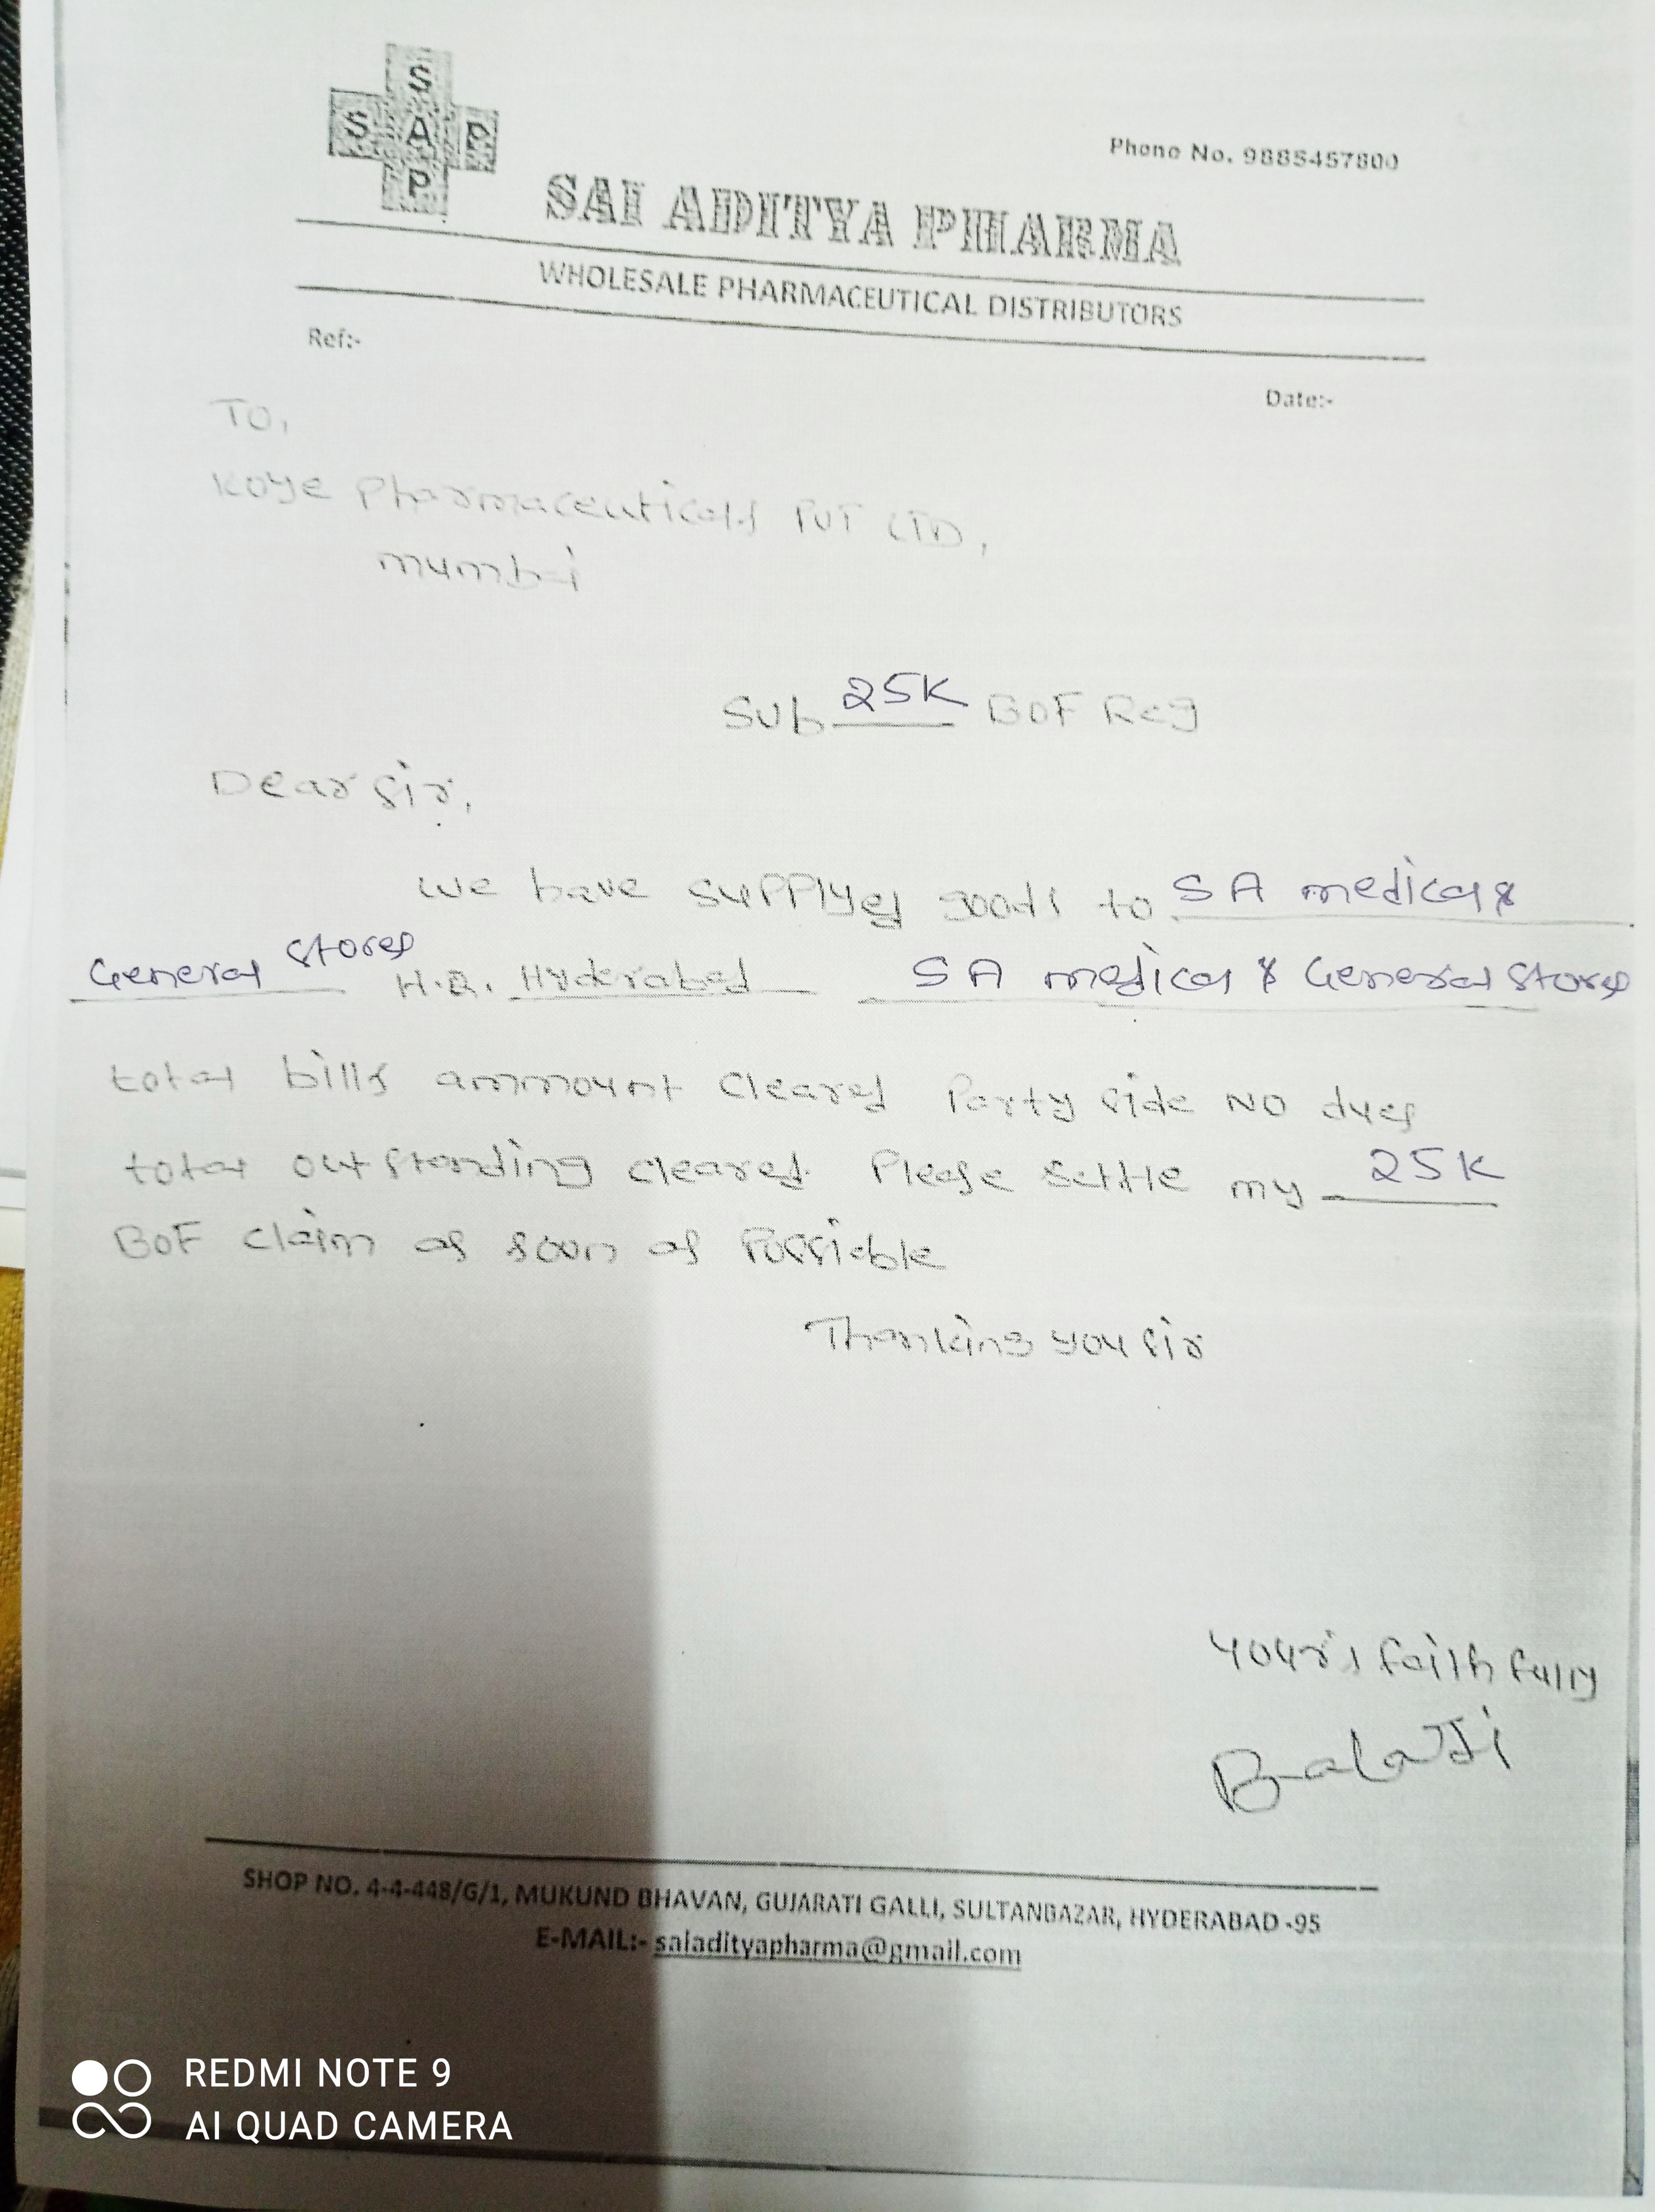 S
S A P
P
Phone No. 9885457800
SAI ADITYA PHARMA
WHOLESALE PHARMACEUTICAL DISTRIBUTORS
Ref:-
Date:-
TO,
Koye Pharmaceuticals PVT LTD,
mumbai
Sub 25K BOF Reg
Dear sir,
we have supplyed goods to SA medical &
General Stores H.Q. Hyderabad SA medical & General Stores
total bills ammount cleared Party side NO dues
total outstanding cleared. Please settle my 25K
BOF claim as soon as Possiable
Thanking you sir
your's faith fully
BalaJi
SHOP NO. 4-4-448/G/1, MUKUND BHAVAN, GUJARATI GALLI, SULTANBAZAR, HYDERABAD -95
E-MAIL:- saiadityapharma@gmail.com
REDMI NOTE 9
AI QUAD CAMERA